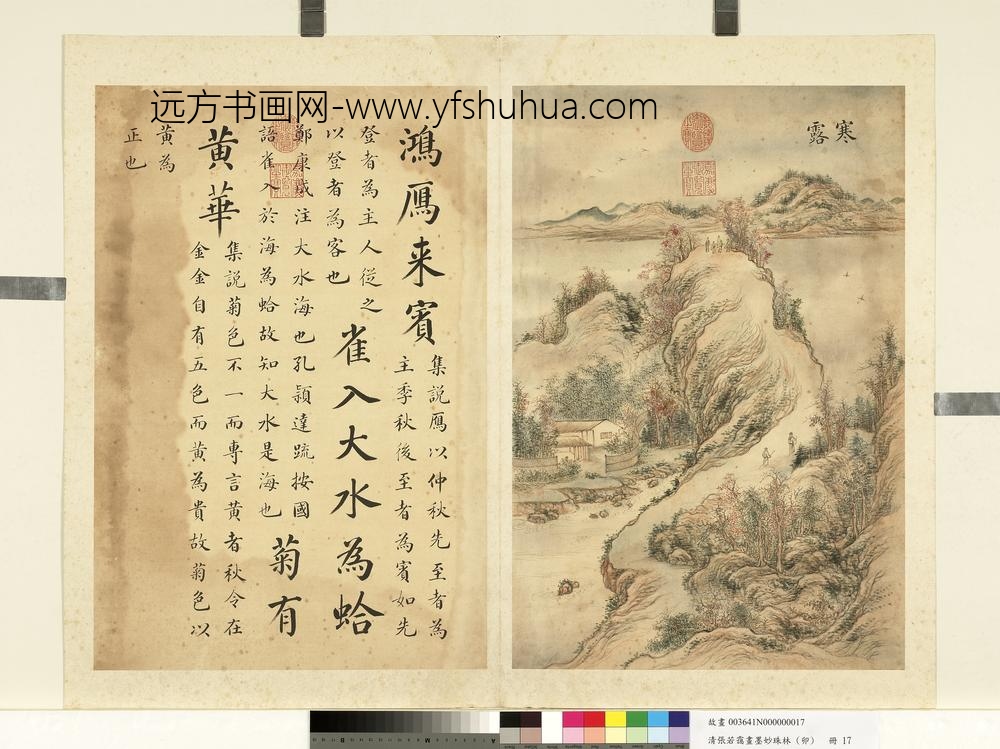 远方书画网-www.yfshuhua.com
寒露
鴻鴈来賓
集説鴈以仲秋先至者為
主季秋後至者為賓如先
登者為主人從之
以登者為客也
雀入大水為蛤
鄭康成注大水海也孔頴達疏按國
語雀入於海為蛤故知大水是海也
菊有
黄華
集説菊色不一而專言黄者秋令在
金金自有五色而黄為貴故菊色以
黄為
正也
故畫 003641N000000017
清張若靄畫墨妙珠林（卯） 冊 17